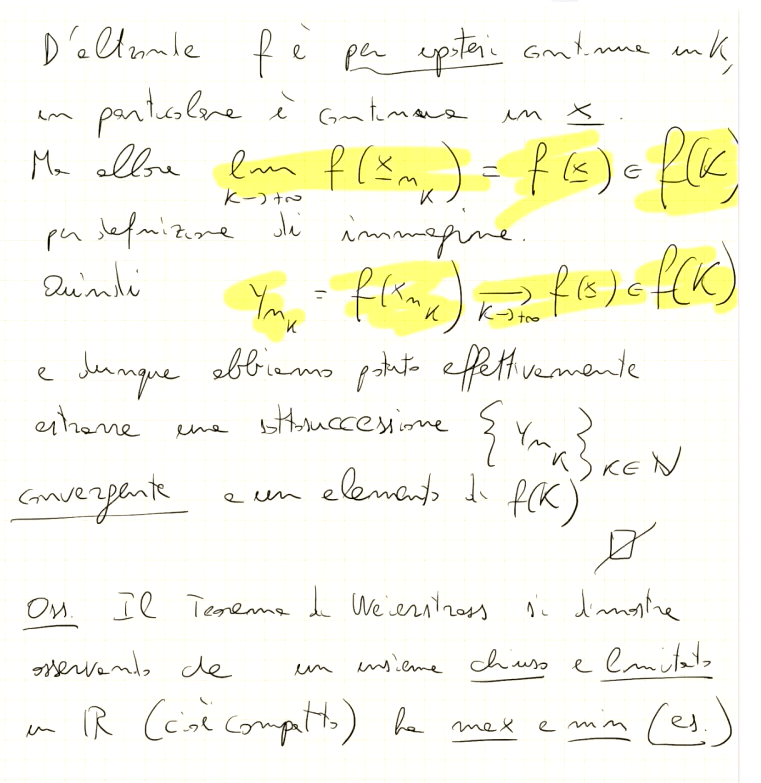 D'altronde f è per ipotesi continua in K,
in particolare è continua in x.
Ma allora lim f(x_{n_K}) = f(x) ∈ f(K)
K→+∞
per definizione di immagine.
Quindi y_{n_K} = f(x_{n_K}) → f(x) ∈ f(K)
K→+∞
e dunque abbiamo potuto effettivamente
estrarre una sottosuccessione {y_{n_K}}_{K∈N}
convergente a un elemento di f(K)
Oss. Il Teorema di Weierstrass si dimostra
osservando che un insieme chiuso e limitato
in R (cioè compatto) ha max e min (es.)